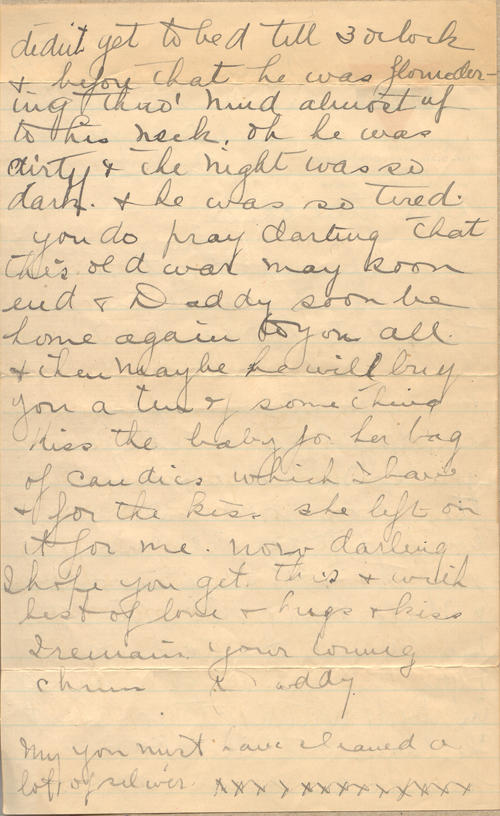 didnt get to bed till 3 oclock
& befor that he was flounder-
ing thro' mud almost up
to his neck. oh he was
dirty & the night was so
dark. & he was so tired.
you do pray darling that
this old war may soon
end & Daddy soon be
home again to you all.
& then maybe he will buy
you a tin of something
Kiss the baby for her bag
of candies which I have
& for the kiss she left on
it for me. now darling
I hope you get this & with
best of love & hugs & kiss
I remain your loving
chum Daddy
My you must have cleaned a
lot of silver. xxxxxxxxxxxxx